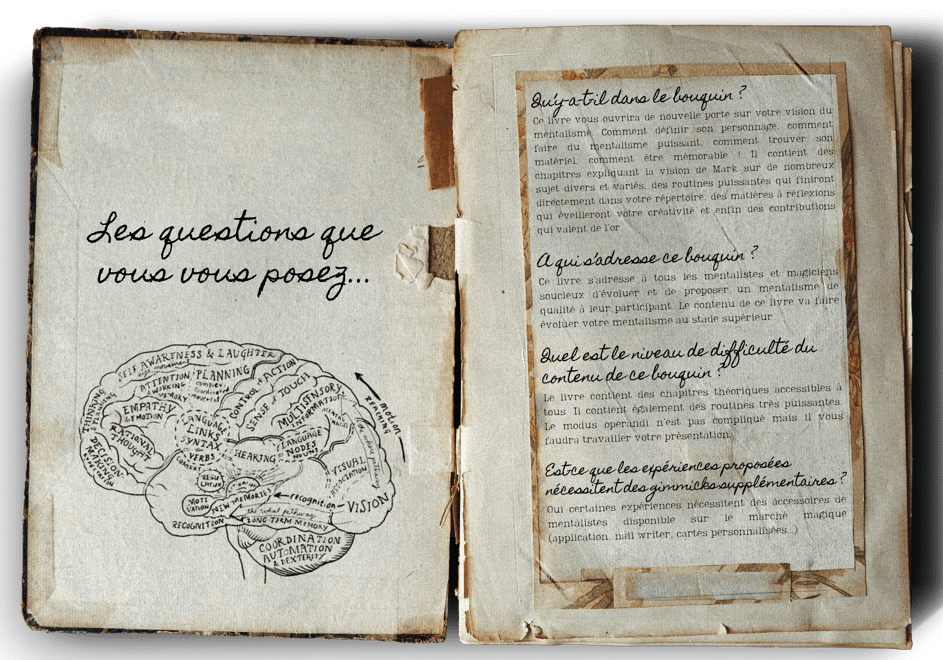 Les questions que
vous vous posez...
SELF AWARENESS & LAUGHTER
PLANNING
ATTENTION
WORKING
MEMORY
CONTROL of ACTION
SENSE of TOUCH
MULTISENSORY
INFORMATION
EMPATHY
& EMOTION
RATIONAL
THOUGHT
DECISION
MAKING
LANGUAGE
LINKS
SYNTAX
VERBS
HEARING
LANGUAGE
NODES
NOUNS
VISUAL
VISION
recognition
NEW MEMORIES
the what pathway
RECOGNITION
LONG TERM MEMORY
COORDINATION
AUTOMATION
& DEXTERITY
Qu'y-a-t-il dans le bouquin ?
Ce livre vous ouvrira de nouvelle porte sur votre vision du
mentalisme. Comment définir son personnage, comment
faire du mentalisme puissant, comment trouver son
matériel, comment être mémorable ! Il contient des
chapitres expliquant la vision de Mark sur de nombreux
sujet divers et variés, des routines puissantes qui finiront
directement dans votre répertoire, des matières à réflexions
qui éveilleront votre créativité et enfin des contributions
qui valent de l'or.
A qui s'adresse ce bouquin ?
Ce livre s'adresse à tous les mentalistes et magiciens
soucieux d'évoluer et de proposer un mentalisme de
qualité à leur participant. Le contenu de ce livre va faire
évoluer votre mentalisme au stade supérieur.
Quel est le niveau de difficulté du
contenu de ce bouquin ?
Le livre contient des chapitres théoriques accessibles à
tous. Il contient également des routines très puissantes.
Le modus operandi n'est pas compliqué mais il vous
faudra travailler votre présentation.
Est-ce que les expériences proposées
nécessitent des gimmicks supplémentaires ?
Oui certaines expériences nécessitent des accessoires de
mentalistes disponible sur le marché magique
(application, nail writer, cartes personnalisées...)